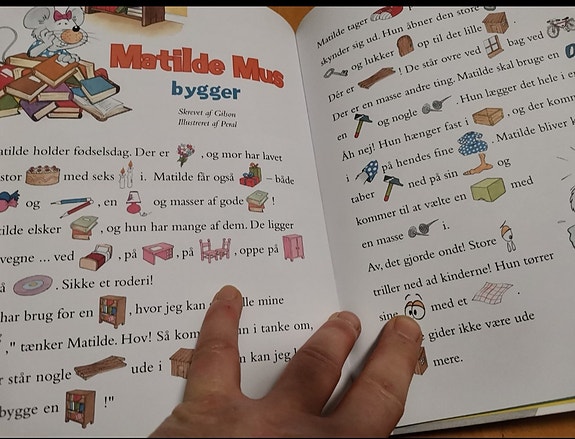 Matilde Mus
bygger
Skrevet af Gilson
Illustreret af Peral
atilde holder fødselsdag. Der er , og mor har lavet
stor med seks i. Matilde får også – både
og , en og masser af gode !
tilde elsker , og hun har mange af dem. De ligger
vegne ... ved , på , på , oppe på
å . Sikke et roderi!
har brug for en , hvor jeg kan ille mine
," tænker Matilde. Hov! Så kom n i tanke om,
r står nogle ude i n kan jeg
bygge en !"
Matilde tager
skynder sig ud. Hun åbner den store
og lukker op til det lille
Dér er ! De står ovre ved bag ved
Der er en masse andre ting. Matilde skal bruge en
en og nogle . Hun lægger det hele i e
Åh nej! Hun hænger fast i , og der kom
i på hendes fine . Matilde bliver k
taber ned på sin og
kommer til at vælte en med
en masse i.
Av, det gjorde ondt! Store
triller ned ad kinderne! Hun tørrer
sine med et .
gider ikke være ude
mere.